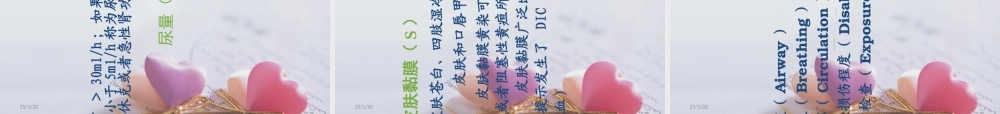 尿量（
> 30ml/h；如果
小于 5ml/h 称为尿
休克或者急性肾功
25/3/20
肤黏膜（ S ）
肤苍白、四肢湿冷
皮肤和口唇甲
皮肤黏膜黄染可
或者阻塞性黄疸所
皮肤黏膜广泛
提示发生了 DIC
血）
25/3/20
（ Airway ）
（ Breathing ）
（ Circulation ）
损伤程度（ Disa
检查（ Exposure
25/3/20